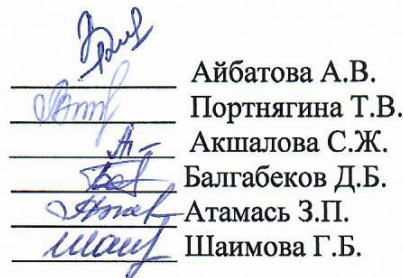 Айбатова А.В.
Портнягина Т.В.
Акшалова С.Ж.
Балгабеков Д.Б.
Атамась З.П.
Шаимова Г.Б.